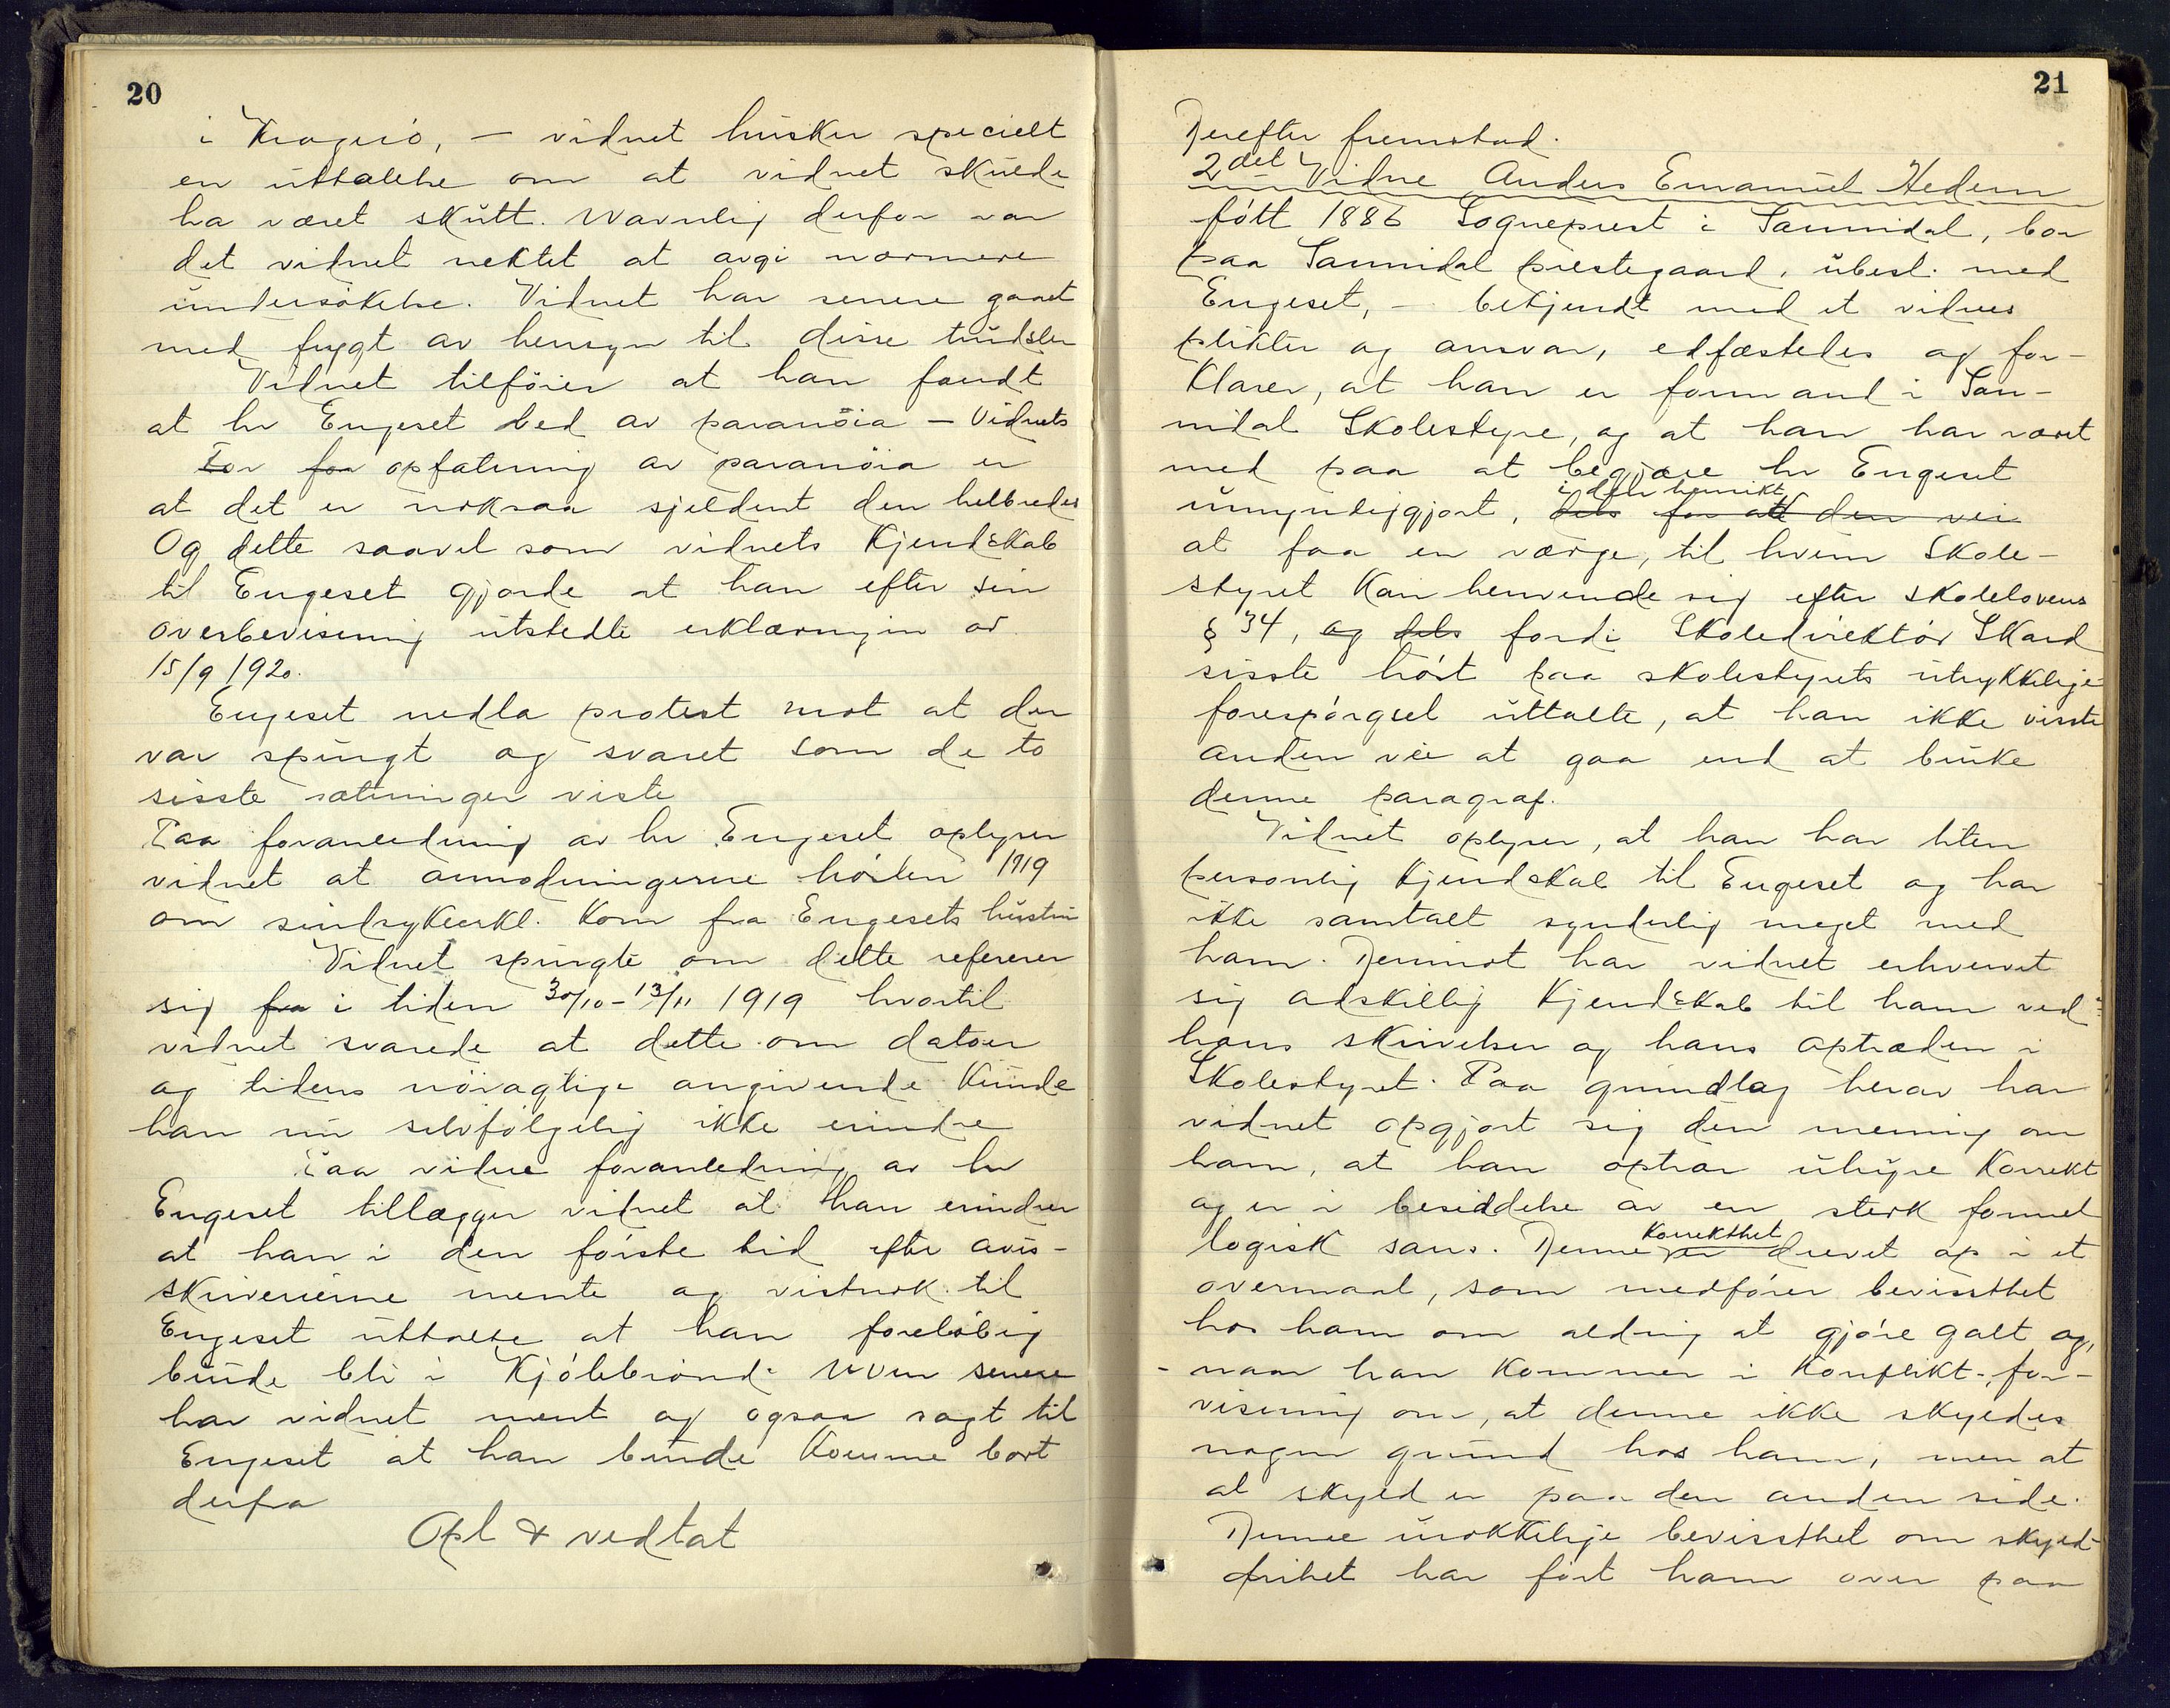 20
i Kragerö, – vidnet husker specielt
en uttalelse om at vidnet skulde
ha været skutt. Navnlig derfor var
det vidnet nektet at avgi nærmere
undersökelse. Vidnet har senere gaaet
med frygt av hensyn til disse trudsler
Vidnet tilföier at han fandt
at hr Engeset led av paranöia – Vidnets
opfatning av paranöia er
at det er noksaa sjeldent den helbredes
Og dette saavel som vidnets Kjendskab
til Engeset gjorde at han efter sin
overbevisning utstedte erklæringen av
15/9 1920.
Engeset nedla protest mot at der
var spurgt og svaret som de to
sisste sætninger viste
Paa foranledning av hr Engeset oplyser
vidnet at anmodningerne hösten 1919
om sindsykeerkl. kom fra Engesets hustru
Vidnet spurgte om dette refererer
sig fra i tiden 30/10 – 13/11 1919 hvortil
vidnet svarede at dette om datoer
og tidens nöiagtige angivende kunde
han nu selvfölgelig ikke erindre
Paa vidre foranledning av hr
Engeset tillægger vidnet at han erindrer
at han i den förste tid efter avis-
skriverierne mente og vistnok til
Engeset uttalte at han forelöbig
burde bli i Kjölebrönd. Men senere
har vidnet ment og ogsaa sagt til
Engeset at han burde komme bort
derfra
Opl & vedtat
21
Derefter fremstod.
2det Vidne Anders Emanuel Hedem
fött 1886 Sogneprest i Sannidal, bor
paa Sannidal prestegaard, ubesl. med
Engeset, – bekjendt med et vidnes
plikter og ansvar, edfæstedes og for-
klarer, at han er formand i San-
nidal Skolestyre, og at han har været
med paa at begjære hr Engeset
i den hensikt
umyndiggjort, dels for at den vei
at faa en værge, til hvem Skole-
styret kan henvende sig efter skolelovens
§ 34, og dels fordi Skoledirektör Skard
sisste höst paa skolestyrets utrykkelige
forespörgsel uttalte, at han ikke visste
anden vei at gaa end at bruke
denne paragraf.
Vidnet oplyser, at han har liten
personlig Kjendskab til Engeset og har
ikke samtalt synderlig meget med
ham. Derimot har vidnet erhvervet
sig adskillig Kjendskab til ham ved
hans skrivelser og hans optræden i
Skolestyret. Paa grundlag herav har
vidnet opgjort sig den mening om
ham, at han optrær uhyre korrekt
og er i besiddelse av en sterk formel
korrekthet
logisk sans. Denne er drevet op i et
overmaal, som medförer bevissthet
hos ham om aldrig at gjöre galt og,
– naar han kommer i Konflikt –, for-
visning om, at denne ikke skyldes
nogen grund hos ham, men at
al skyld er paa den anden side.
Denne urokkelige bevissthet om skyld-
frihet har fört ham over paa